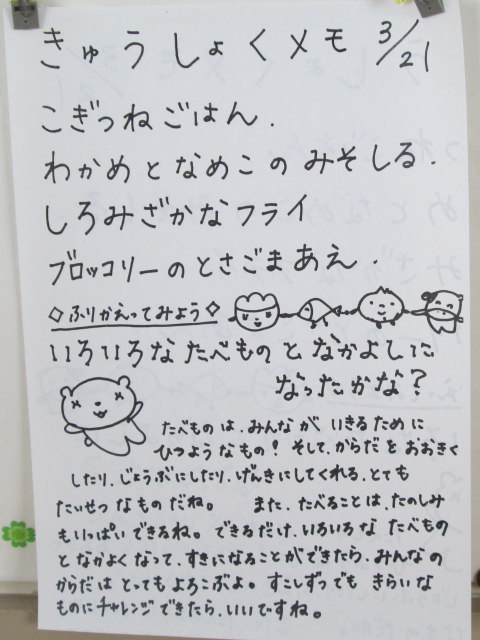 きゅうしょくメモ 3/21
こぎつねごはん.
わかめとなめこのみそしる.
しろみざかなフライ
ブロッコリーのとさごまあえ.
◇ふりかえってみよう◇
いろいろなたべものとなかよしに
なったかな?
たべものは、みんながいきるために
ひつようなもの! そして、からだをおおきく
したり、じょうぶにしたり、げんきにしてくれる、とても
たいせつなものだね。 また、たべることは、たのしみ
もいっぱいできるね。できるだけ、いろいろなたべもの
となかよくなって、すきになることができたら、みんなの
からだはとってもよろこぶよ。すこしずつでもきらいな
ものにチャレンジできたら、いいですね。